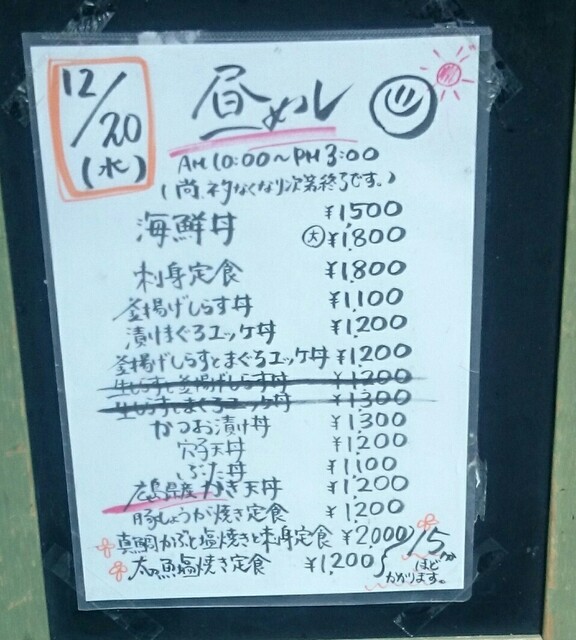 12/20
(水)
昼めし
AM 10:00～PM 3:00
(尚、ネタなくなり次第終了です。)
海鮮丼 ¥1,500
(大) ¥1,800
刺身定食 ¥1,800
釜揚げしらす丼 ¥1,100
漬けまぐろユッケ丼 ¥1,200
釜揚げしらすとまぐろユッケ丼 ¥1,200
生しらすと釜揚げしらす丼 ¥1,200
生しらすとまぐろユッケ丼 ¥1,300
かつお漬け丼 ¥1,300
穴子天丼 ¥1,200
ぶた丼 ¥1,100
広島県産かき天丼 ¥1,200
豚しょうが焼き定食 ¥1,200
真鯛かぶと塩焼きと刺身定食 ¥2,000
太刀魚塩焼き定食 ¥1,200
15分
ほど
かかります。